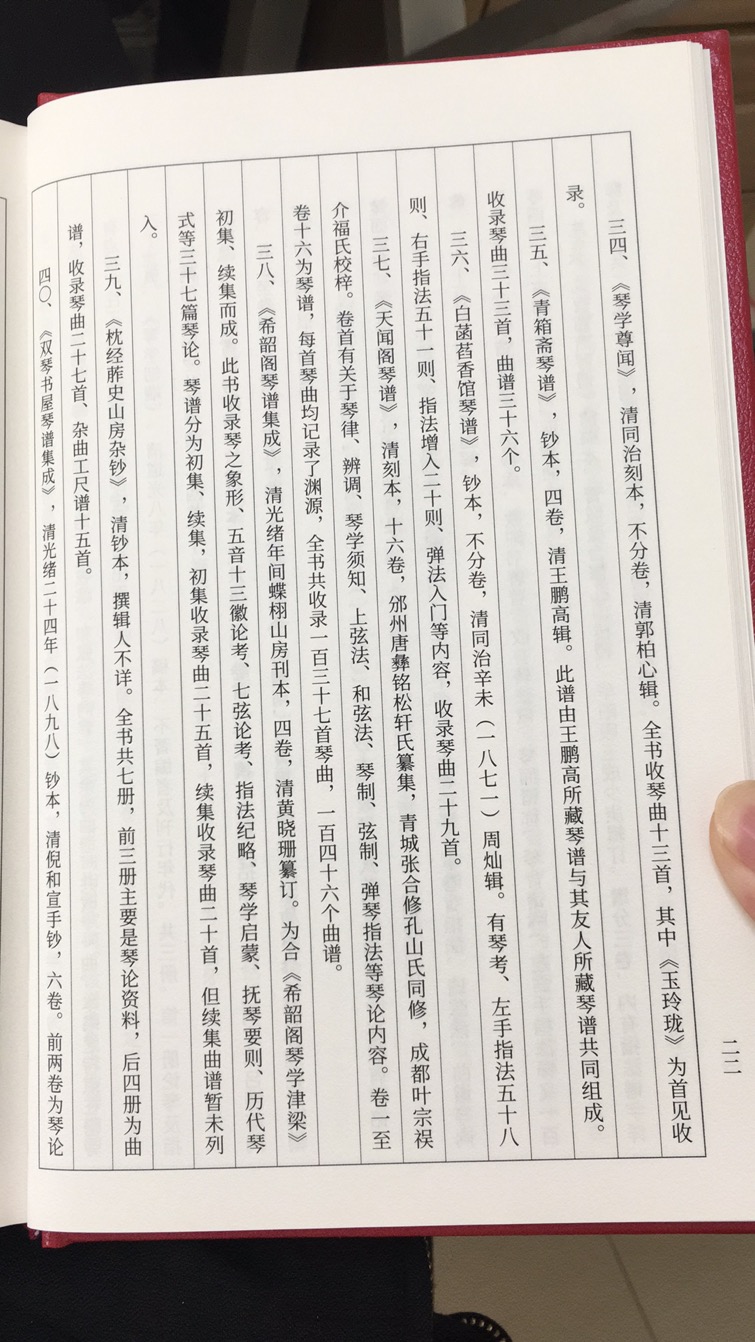 三四、《琴学尊闻》，清同治刻本，不分卷，清郭柏心辑。全书收琴曲十三首，其中《玉玲珑》为首见收
录。
三五、《青箱斋琴谱》，钞本，四卷，清王鹏高辑。此谱由王鹏高所藏琴谱与其友人所藏琴谱共同组成。
收录琴曲三十三首，曲谱三十六个。
三六、《白菡萏香馆琴谱》，钞本，不分卷，清同治辛未（一八七一）周灿辑。有琴考、左手指法五十八
则、右手指法五十一则、指法增入二十则、弹法入门等内容，收录琴曲二十九首。
三七、《天闻阁琴谱》，清刻本，十六卷，邠州唐彝铭松轩氏纂集，青城张合修孔山氏同修，成都叶宗祺
介福氏校梓。卷首有关于琴律、辨调、琴学须知、上弦法、和弦法、琴制、弦制、弹琴指法等琴论内容。卷一至
卷十六为琴谱，每首琴曲均记录了渊源，全书共收录一百三十七首琴曲，一百四十六个曲谱。
三八、《希韶阁琴谱集成》，清光绪年间蝶栩山房刊本，四卷，清黄晓珊纂订。为合《希韶阁琴学津梁》
初集、续集而成。此书收录琴之象形、五音十三徽论考、七弦论考、指法纪略、琴学启蒙、抚琴要则、历代琴
式等三十七篇琴论。琴谱分为初集、续集，初集收录琴曲二十五首，续集收录琴曲二十首，但续集曲谱暂未列
入。
三九、《枕经葄史山房杂钞》，清钞本，撰辑人不详。全书共七册，前三册主要是琴论资料，后四册为曲
谱，收录琴曲二十七首、杂曲工尺谱十五首。
四〇、《双琴书屋琴谱集成》，清光绪二十四年（一八九八）钞本，清倪和宣手钞，六卷。前两卷为琴论
二二